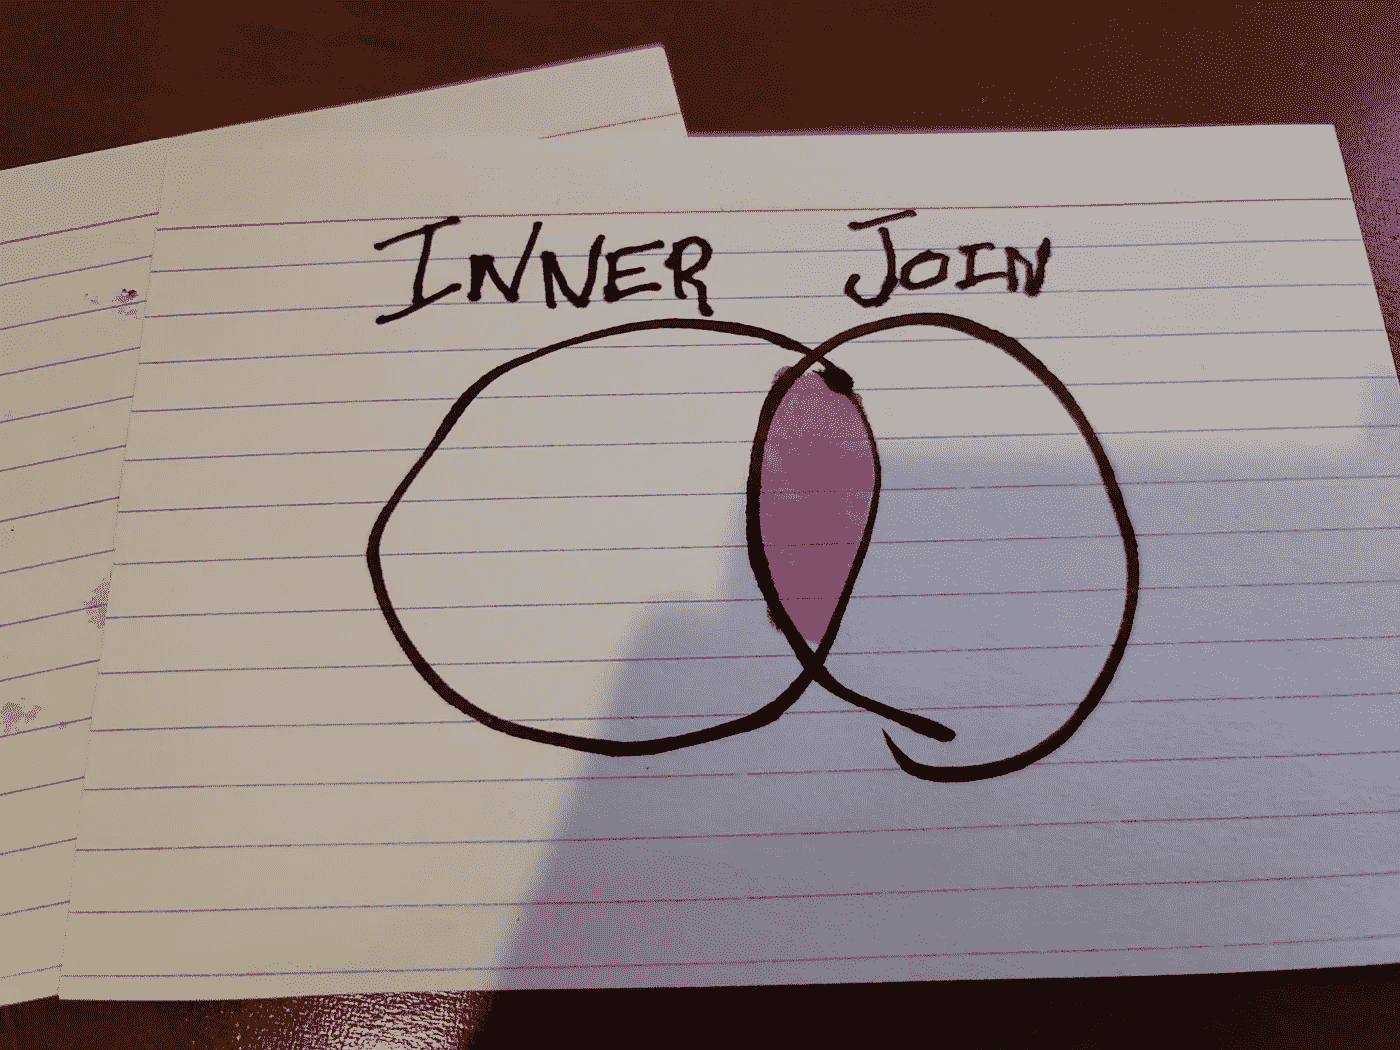 INNER JOIN